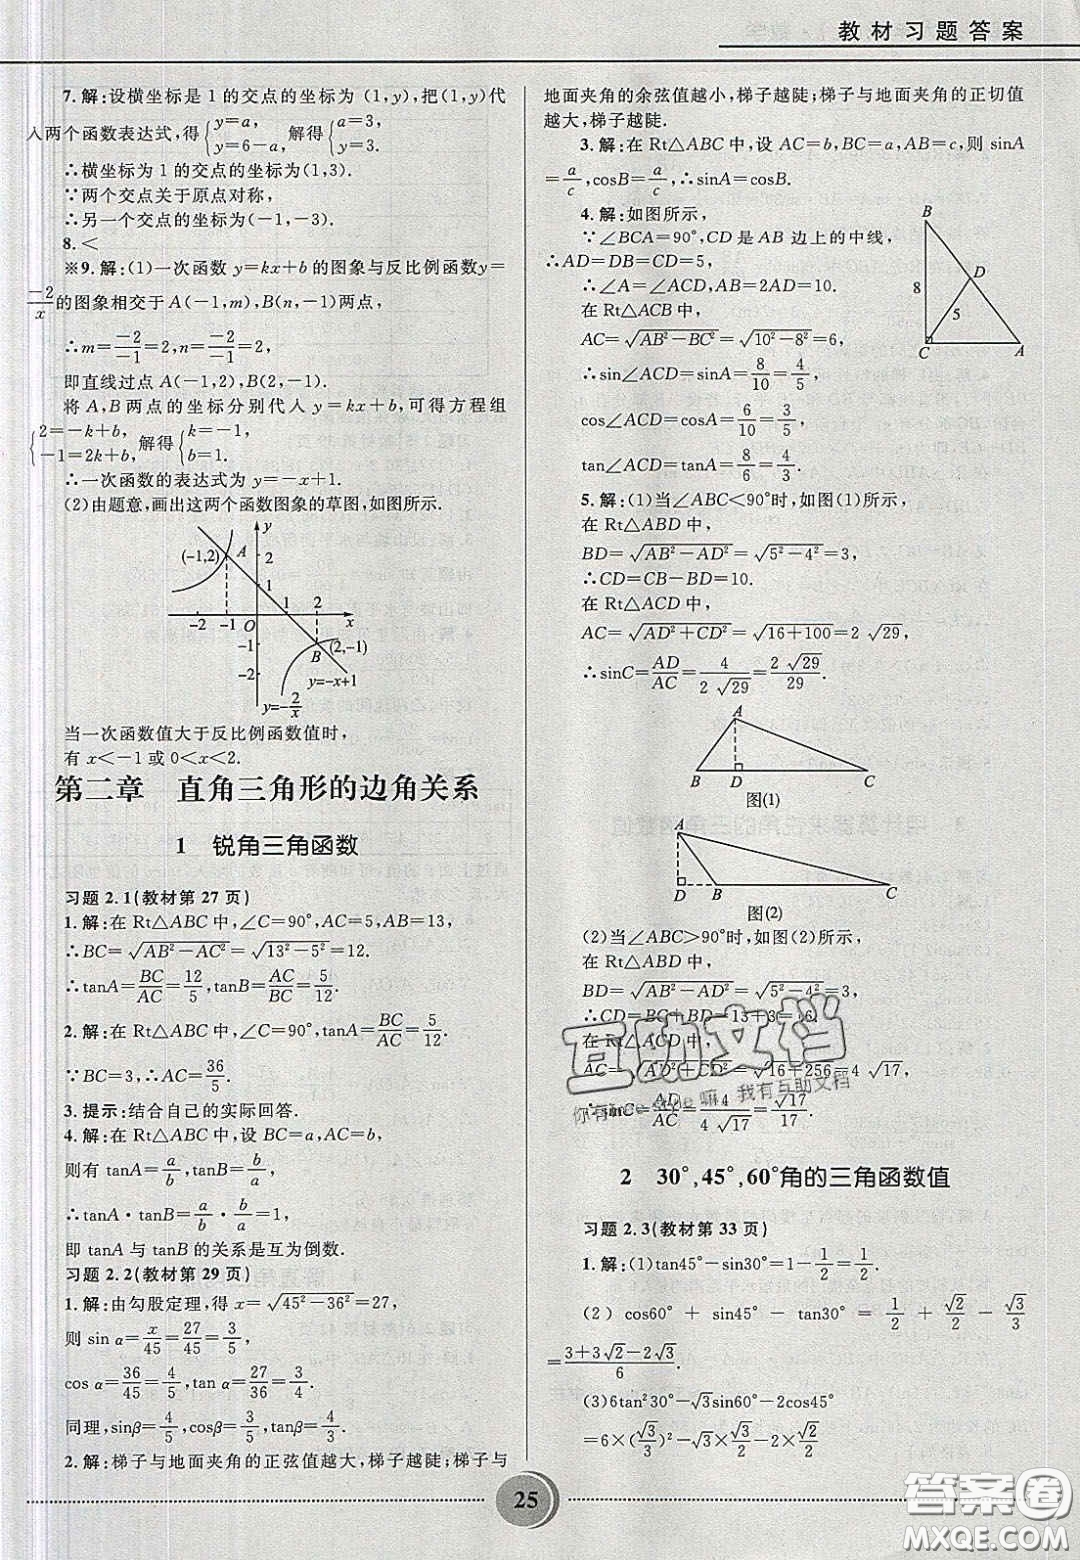 教材习题答案
7.解:设横坐标是1的交点的坐标为(1,y),把(1,y)代
入两个函数表达式,得{y=a, y=6-a, 解得{a=3, y=3.
∴横坐标为1的交点的坐标为(1,3).
∵两个交点关于原点对称,
∴另一个交点的坐标为(-1,-3).
8.<
※9.解:(1)一次函数y=kx+b的图象与反比例函数y=
-2/x的图象相交于A(-1,m),B(n,-1)两点,
∴m=-2/-1=2,n=-2/-1=2,
即直线过点A(-1,2),B(2,-1).
将A,B两点的坐标分别代入y=kx+b,可得方程组
{2=-k+b, -1=2k+b, 解得{k=-1, b=1.
∴一次函数的表达式为y=-x+1.
(2)由题意,画出这两个函数图象的草图,如图所示.
y
(-1,2) A 2
1 1 2
-2 -1 O x
-1 (2,-1)
B
-2 y=-x+1
y=-2/x
当一次函数值大于反比例函数值时,
有x<-1或0<x<2.
第二章 直角三角形的边角关系
1 锐角三角函数
习题2.1(教材第27页)
1.解:在Rt△ABC中,∠C=90°,AC=5,AB=13,
∴BC=√(AB²-AC²)=√(13²-5²)=12.
∴tanA=BC/AC=12/5,tanB=AC/BC=5/12.
2.解:在Rt△ABC中,∠C=90°,tanA=BC/AC=5/12.
∵BC=3,∴AC=36/5.
3.提示:结合自己的实际回答.
4.解:在Rt△ABC中,设BC=a,AC=b,
则有tanA=a/b,tanB=b/a.
∴tanA·tanB=a/b·b/a=1,
即tanA与tanB的关系是互为倒数.
习题2.2(教材第29页)
1.解:由勾股定理,得x=√(45²-36²)=27,
则sin α=x/45=27/45=3/5,
cos α=36/45=4/5,tan α=27/36=3/4.
同理,sinβ=4/5,cosβ=3/5,tanβ=4/3.
2.解:梯子与地面夹角的正弦值越大,梯子越陡;梯子与
地面夹角的余弦值越小,梯子越陡;梯子与地面夹角的正切值
越大,梯子越陡.
3.解:在Rt△ABC中,设AC=b,BC=a,AB=c,则sinA
=a/c,cosB=a/c,∴sinA=cosB.
4.解:如图所示,
∵∠BCA=90°,CD是AB边上的中线,
∴AD=DB=CD=5,
∴∠A=∠ACD,AB=2AD=10.
在Rt△ACB中,
AC=√(AB²-BC²)=√(10²-8²)=6,
∴sin∠ACD=sinA=8/10=4/5,
cos∠ACD=cosA=6/10=3/5,
tan∠ACD=tanA=8/6=4/3.
B
D
8
5
C A
5.解:(1)当∠ABC<90°时,如图(1)所示,
在Rt△ABD中,
BD=√(AB²-AD²)=√(5²-4²)=3,
∴CD=CB-BD=10.
在Rt△ACD中,
AC=√(AD²+CD²)=√(16+100)=2√29,
∴sinC=AD/AC=4/(2√29)=2√29/29.
A
B D C
图(1)
A
D B C
图(2)
(2)当∠ABC>90°时,如图(2)所示,
在Rt△ABD中,
BD=√(AB²-AD²)=√(5²-4²)=3,
∴CD=BC+BD=13+3=16.
在Rt△ACD中,
AC=√(AD²+CD²)=√(16+256)=4√17,
∴sinC=AD/AC=4/(4√17)=√17/17.
互助文档
嘛,我有互助文档
2 30°,45°,60°角的三角函数值
习题2.3(教材第33页)
1.解:(1)tan45°-sin30°=1-1/2=1/2.
(2) cos60° + sin45° - tan30° = 1/2 + √2/2 - √3/3
=(3+3√2-2√3)/6.
(3)6tan²30°-√3sin60°-2cos45°
=6×(√3/3)²-√3×√3/2-2×√2/2
25
答案圈
MXQE.COM